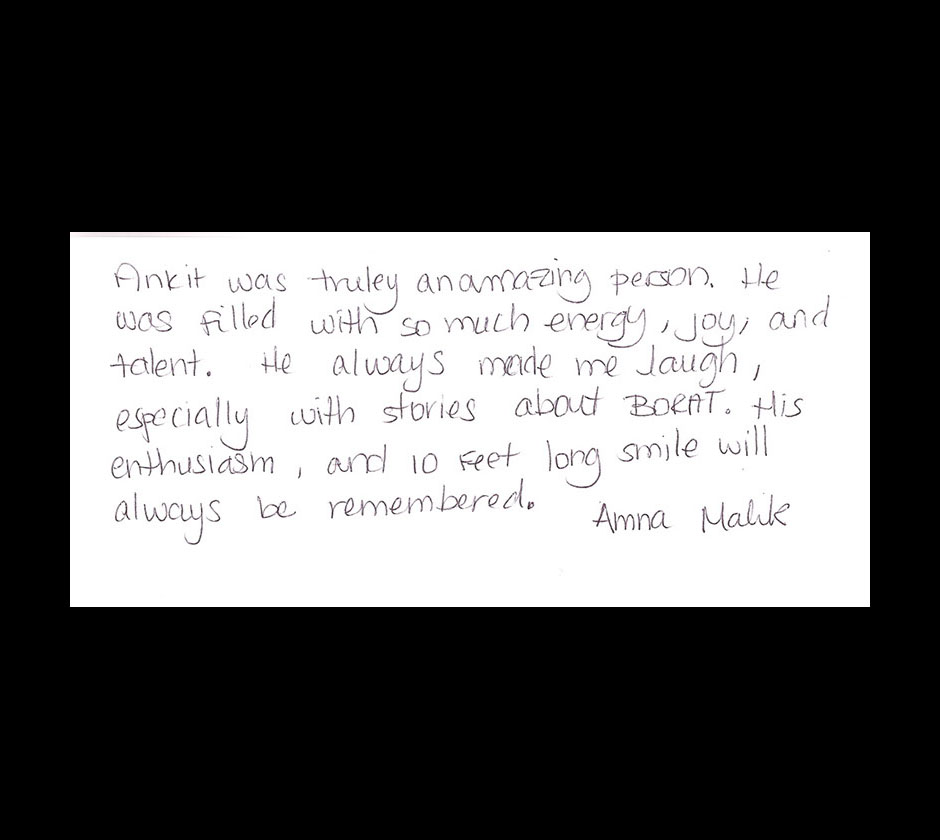 Ankit was truley an amazing person. He
was filled with so much energy, joy, and
talent. He always made me laugh,
especially with stories about BORAT. His
enthusiasm, and 10 feet long smile will
always be remembered.
Amna Malik